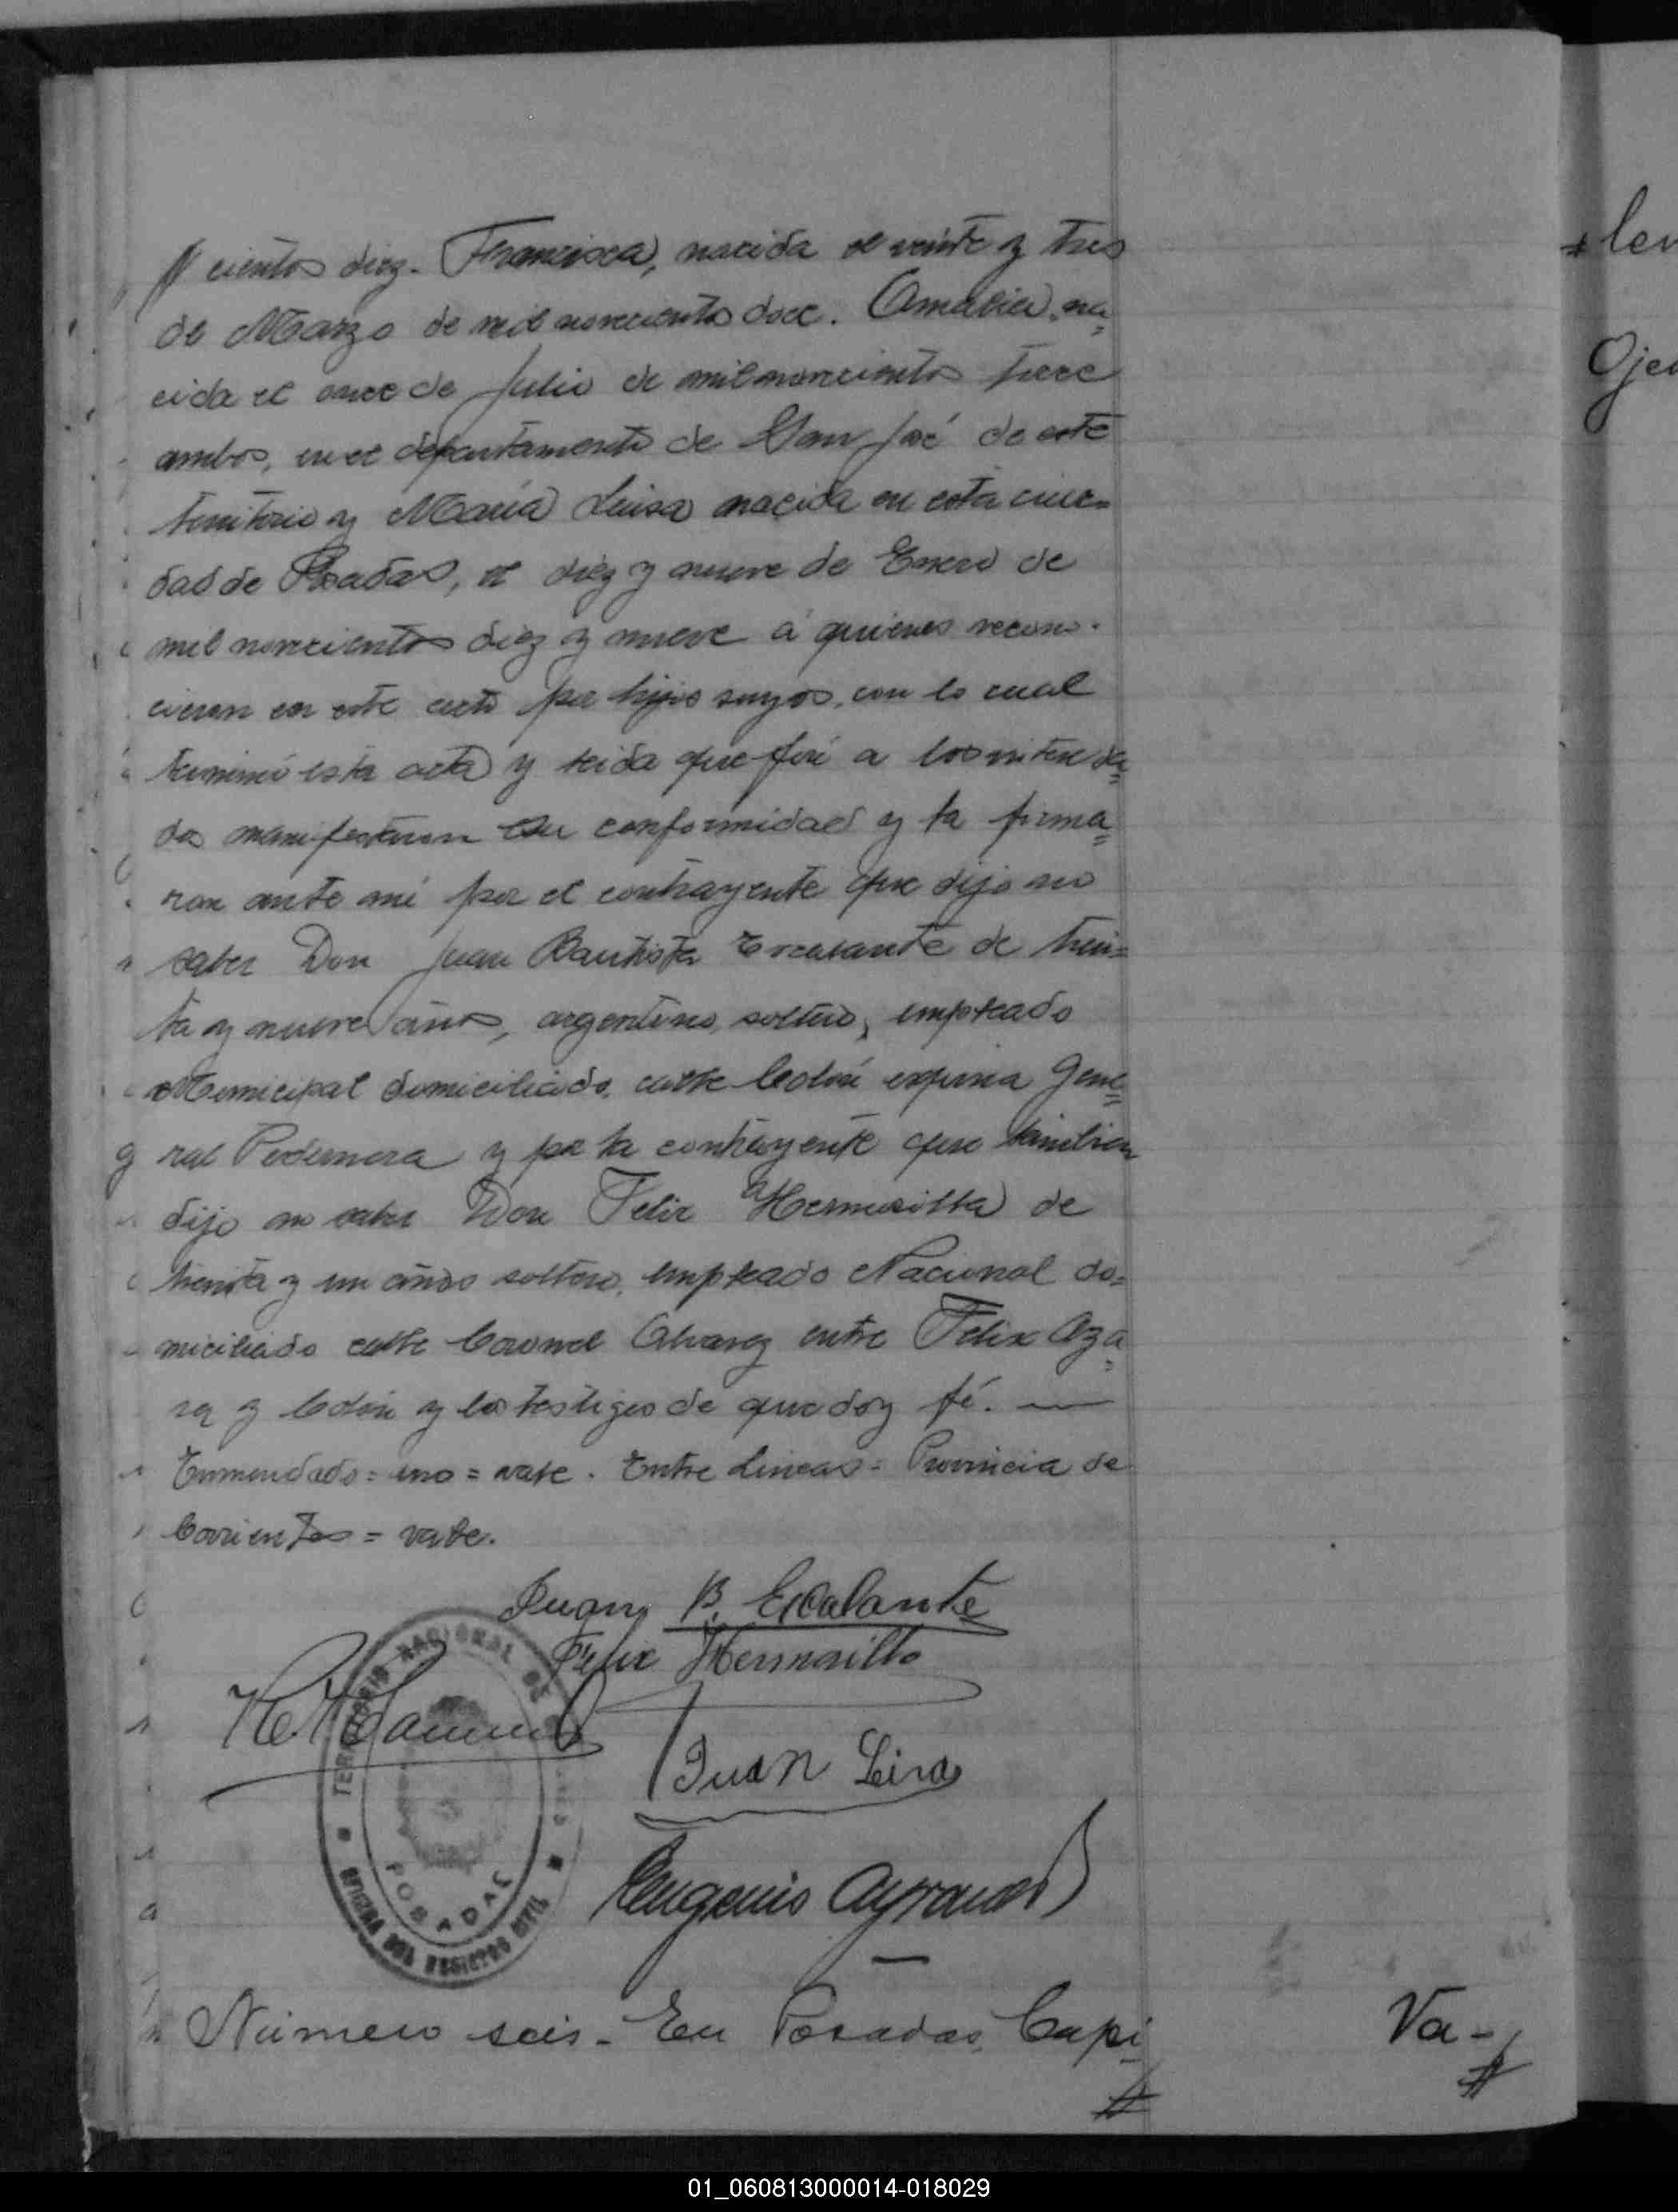 cientos diez. Francisca, nacida el veinte y tres
de Marzo de mil novecientos doce. Amalia, na=
cida el once de Julio de mil novecientos trece
ambos, en el departamento de San José de este
territorio y María Luisa nacida en esta ciu=
dad de Posadas, el diez y nueve de Enero de
mil novecientos diez y nueve á quienes recono-
cieron en este acto por hijos suyos, con lo cual
terminó esta acta y leida que fué a los interesa=
dos manifestaron su conformidad y la firma=
ron ante mí por el contrayente que dijo no
saber Don Juan Bautista Escalante de trein=
ta y nueve años, argentino, soltero, empleado
Municipal domiciliado, calle Colón esquina Gene=
ral Pedernera y por la contrayente que tambien
dijo no saber Don Felix Hermosilla de
treinta y un años soltero, empleado Nacional do=
miciliado calle Coronel Alvarez entre Felix Aza=
ra y Colón y los testigos de que doy fé. —
Enmendado = uno = vale. Entre lineas = Provincia de
Corrientes = vale.
Juan B. Escalante
Felix Hermosilla
TERRITORIO NACIONAL DE
Juan Leiva
POSADAS
OFICINA DEL REGISTRO CIVIL
Eugenio
Número seis - En Posadas, Capi
Va-
01_060813000014-018029